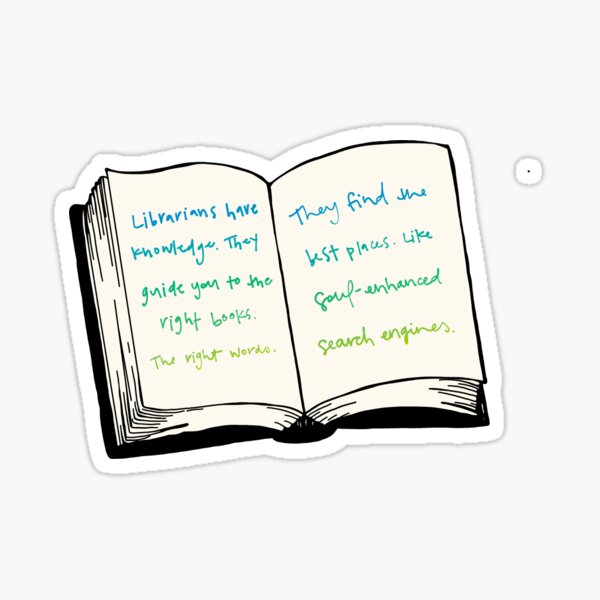 Librarians have
knowledge. They
guide you to the
right books.
The right words.
They find the
best places. Like
soul-enhanced
search engines.